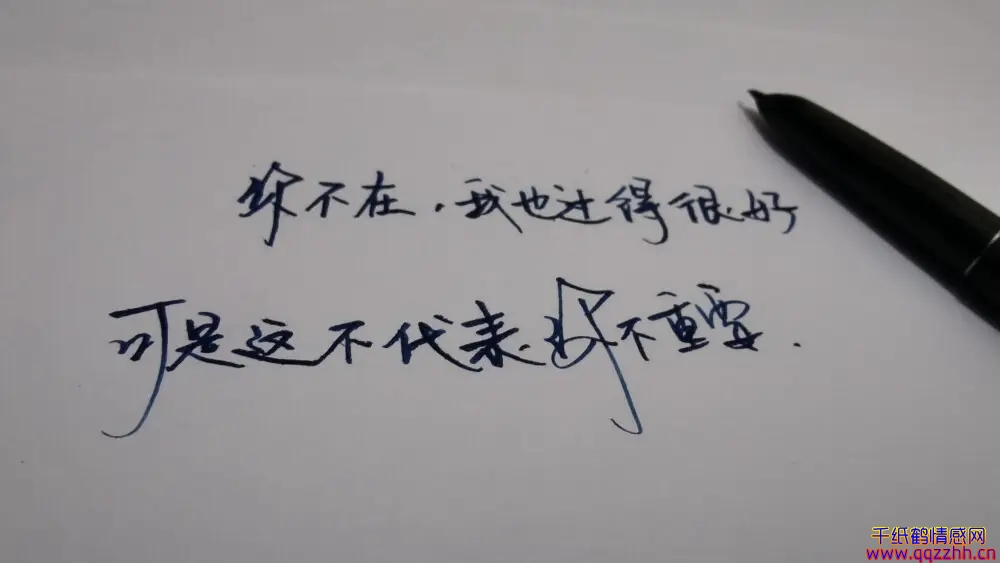 你不在，我也过得很好
可是这不代表你不重要.
千纸鹤情感网
www.qqzzhh.cn